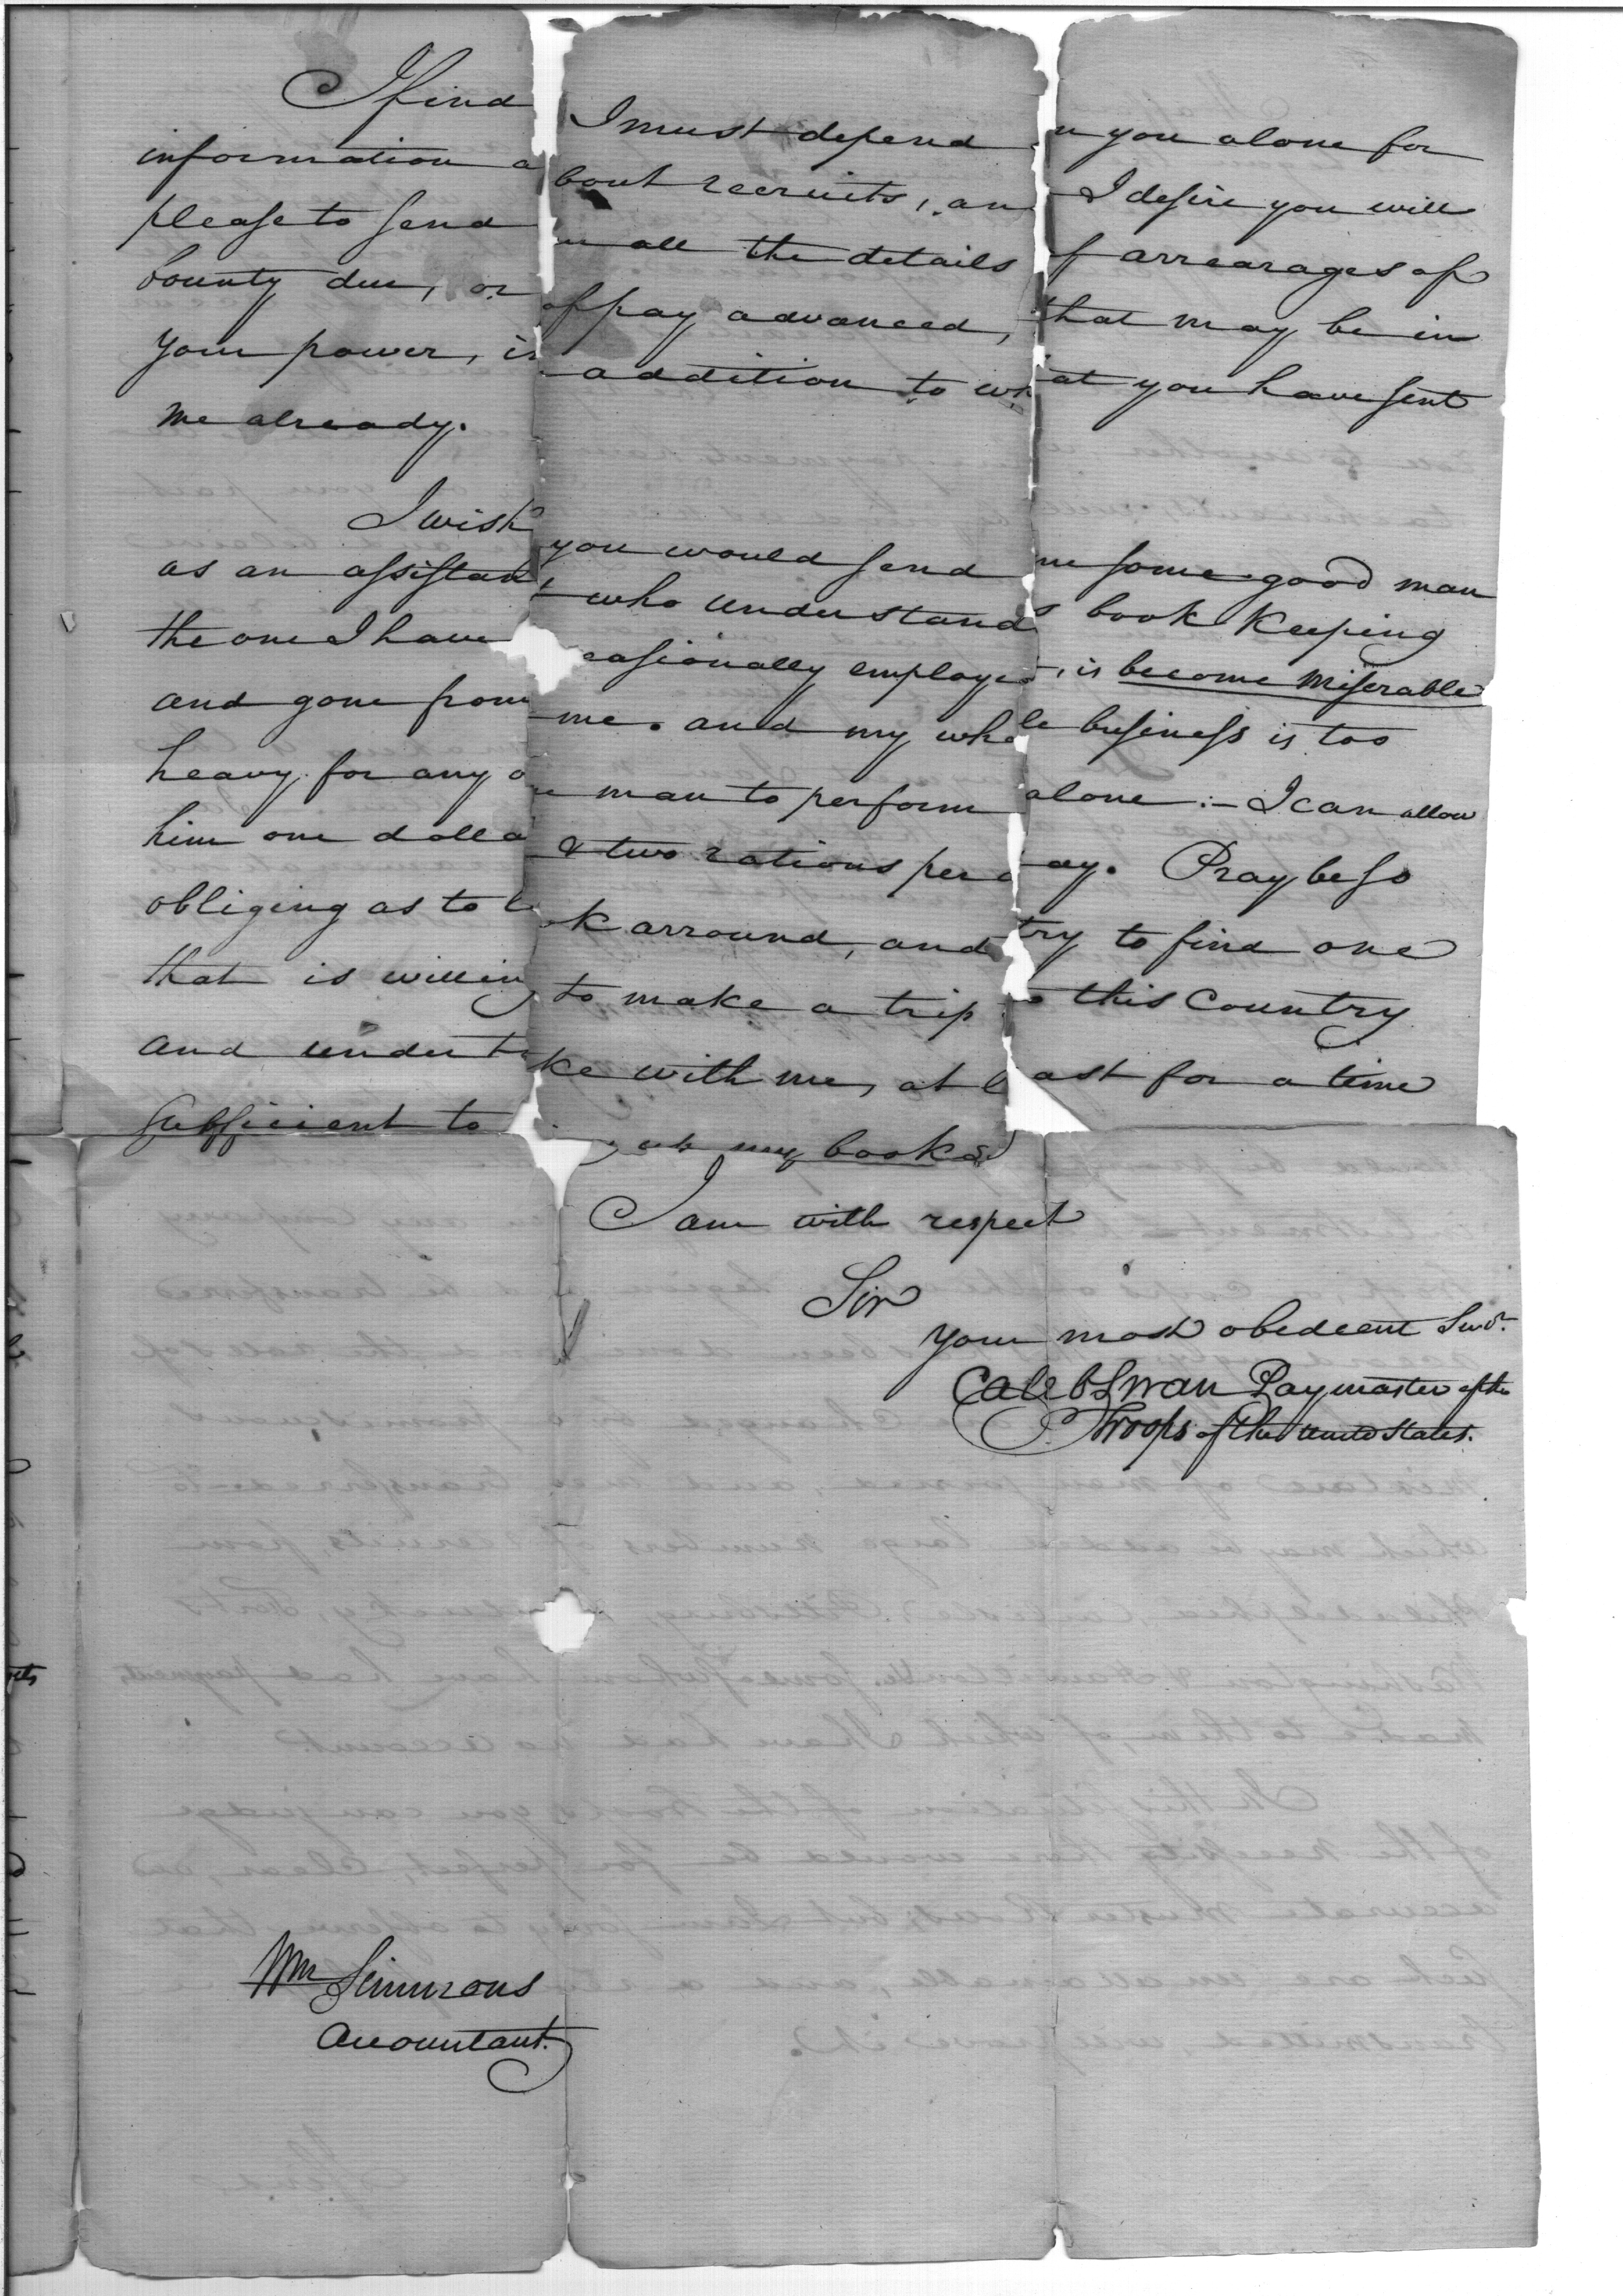 I find I must depend on you alone for
information about recruits, and I desire you will
please to send me all the details of arrearages of
bounty due, or of pay advanced, that may be in
your power, in addition to what you have sent
me already.
I wish you would send me some good man
as an assistant, who understands book keeping
the one I have occasionally employed, is become miserable
and gone from me. and my whole business is too
heavy for any one man to perform alone :- I can allow
him one dollar & two rations per day. Pray be so
obliging as to look arround, and try to find one
that is willing to make a trip to this Country
and undertake with me, at least for a time
sufficient to up my books
I am with respect
Sir
your most obedient Servt.
Caleb Swan Paymaster of the
Troops of the United States.
Wm Simmons
Accountant.